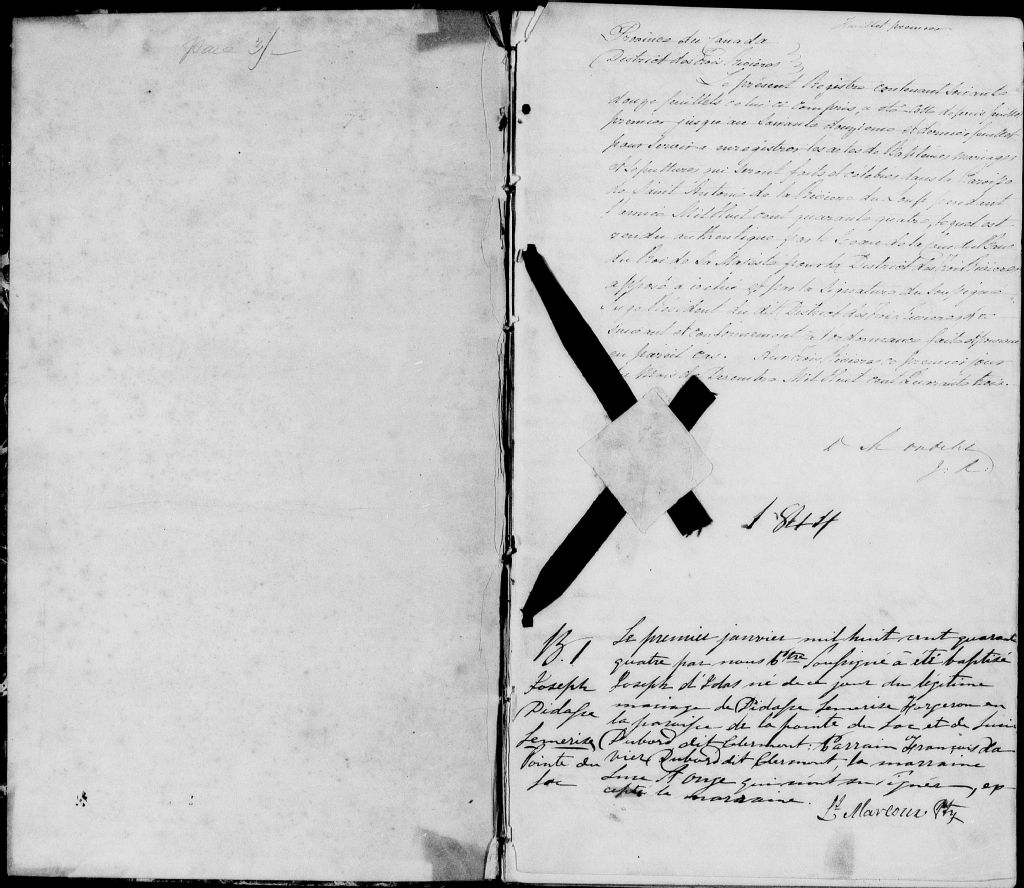 3/-
feuillet premier
Province du Canada
District des Trois Rivières
Le présent Registre contenant soixante
douze feuillets celui ci compris, a été cotté depuis feuillet
premier jusqu'au soixante douzième et dernier feuillet
pour servir a enregistrer les actes de Baptêmes, mariages
et sepultures qui seront faits et célébrés dans la Paroisse
de Saint Antoine de la Rivière du Loup pendant
l'année Mil Huit cent quarante quatre, lequel est
rendu authentique par le Sceau de la Cour du Banc
du Roi de Sa Majesté pour le District des Trois Rivières
apposé a icelui et par la signature du soussigné
Juge Résident du dit District des Trois Rivières
suivant et conformément à l'ordonnance faite et pourvue
en pareil cas. Aux Trois Rivières ce premier jour
du Mois de Decembre Mil Huit cent Quarante trois.
D Mondelet
J. R.
1844
B. 1
Joseph
Didasse
Lemerise
Pointe du
Lac
Le premier janvier mil huit cent quarante
quatre par nous Ptre Soussigné a été baptisé
Joseph né de ce jour du légitime
mariage de Didasse Lemerise Forgeron en
la paroisse de la pointe du Lac et de Lucie
Dubord dit Clermont. Parrain François
Dubord dit Clermont, la marraine
qui ont signés, ex-
cepté la marraine.
Lt Marcoux Ptre